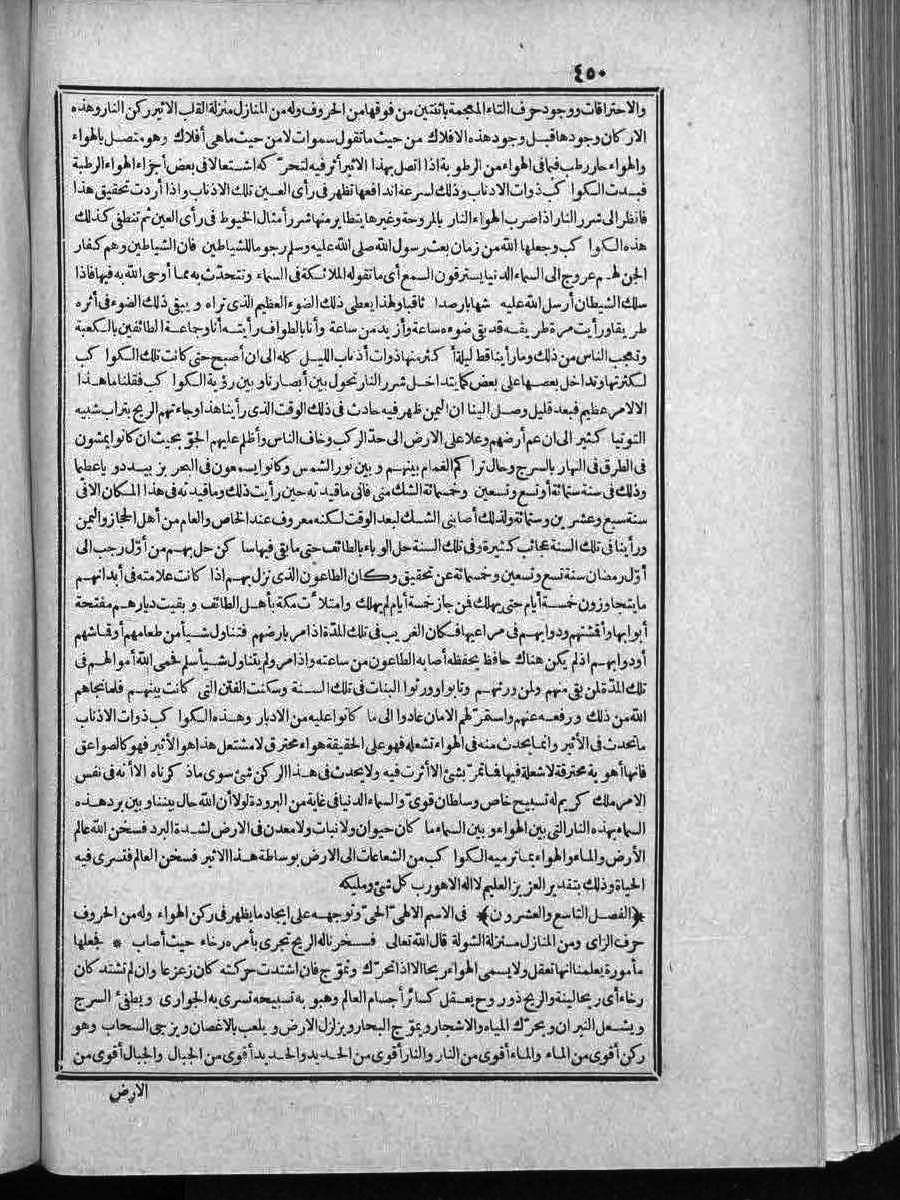 ٤٥٠
والاحتراقات ووجود حرف التاء المعجمة باثنتين من فوقها من الحروف وله من المنازل منزلة القلب الاثير ركن النار وهذه
الاركان وجودها قبل وجود هذه الافلاك من حيث ما تقول سموات لا من حيث ما هى أفلاك وهو متصل بالهواء
والهواء حار رطب فبما فى الهواء من الرطوبة اذا اتصل بهذا الاثير أثر فيه لتحرّكه اشتعالا فى بعض أجزاء الهواء الرطبة
فبدت الكواكب ذوات الاذناب وذلك لسرعة اندفاعها تظهر فى رأى العين تلك الاذناب واذا أردت تحقيق هذا
فانظر الى شرر النار اذا ضرب الهواء النار بالمروحة وغيرها يتطاير منها شرر أمثال الخيوط فى رأى العين ثم تنطفى كذلك
هذه الكواكب وجعلها الله من زمان بعث رسول الله صلى الله عليه وسلم رجوما للشياطين فان الشياطين وهم كفار
الجن لهم عروج الى السماء الدنيا يسترقون السمع أى ما تقوله الملائكة فى السماء وتتحدّث به مما أوحى الله به فيها فاذا
سلك الشيطان أرسل الله عليه شهابا رصدا ثاقبا ولهذا يعطى ذلك الضوء العظيم الذى تراه ويبقى ذلك الضوء فى أثره
طريقا ورأيت مرة طريقه قد بقى ضوءه ساعة وأزيد من ساعة وأنا بالطواف رأيته أنا وجماعة الطائفين بالكعبة
وتعجب الناس من ذلك وما رأينا قط ليلة أكثر منها ذوات أذناب الليل كله الى ان أصبح حتى كانت تلك الكواكب
لكثرتها وتداخل بعضها على بعض كما يتداخل شرر النار تحول بين أبصارنا وبين رؤية الكواكب فقلنا ما هذا
الا لامر عظيم فبعد قليل وصل الينا ان اليمن ظهر فيه حادث فى ذلك الوقت الذى رأينا هذا وجاءتهم الريح بتراب شبيه
التوتيا كثير الى ان عم أرضهم وعلا على الارض الى حدّ الركب وخاف الناس وأظلم عليهم الجوّ بحيث ان كانوا يمشون
فى الطرق فى النهار بالسرج وحال تراكم الغمام بينهم وبين نور الشمس وكانوا يسمعون فى البحر بزبيد دويا عظيما
وذلك فى سنة ستمائة أو تسع وتسعين وخمسمائة الشك منى فانى ما قيدته حين رأيت ذلك وما قيدته فى هذا المكان الا فى
سنة سبع وعشرين وستمائة ولذلك أصابنى الشك لبعد الوقت لكنه معروف عند الخاص والعام من أهل الحجاز واليمن
ورأينا فى تلك السنة عجائب كثيرة وفى تلك السنة حل الوباء بالطائف حتى ما بقى فيها ساكن حل بهم من أوّل رجب الى
أوّل رمضان سنة تسع وتسعين وخمسمائة عن تحقيق وكان الطاعون الذى نزل بهم اذا كانت علامته فى أبدانهم
ما يتجاوزون خمسة أيام حتى يهلك فمن جاز خمسة أيام لم يهلك وامتلأت مكة بأهل الطائف وبقيت ديارهم مفتحة
أبوابها وأقشتهم ودوابهم فى مراعيها فكان الغريب فى تلك المدّة اذا مر بارضهم فتناول شيأ من طعامهم أو قماشهم
أو دوابهم اذ لم يكن هناك حافظ يحفظه أصابه الطاعون من ساعته واذا مر ولم يتناول شيأ سلم فحمى الله أموالهم فى
تلك المدّة لمن بقى منهم ولمن ورثهم وتابوا وورثوا البنات فى تلك السنة وسكنت الفتن التى كانت بينهم فلما نجاهم
الله من ذلك ورفعه عنهم واستمرّ لهم الامان عادوا الى ما كانوا عليه من الادبار وهذه الكواكب ذوات الاذناب
ما تحدث فى الأثير وانما يحدث منه فى الهواء تشعله فهو على الحقيقة هواء محترق لا مشتعل هذا هو الأثير فهو كالصواعق
فانها أهوية محترقة لا شعلة فيها فما تمرّ بشئ الا أثرت فيه ولا يحدث فى هذا الركن شئ سوى ما ذكرناه الا أنه فى نفس
الامر ملك كريم له تسبيح خاص وسلطان قوىّ والسماء الدنيا فى غاية من البرودة لولا أن الله حال بيننا وبين برد هذه
السماء بهذه النار التى بين الهواء وبين السماء ما كان حيوان ولا نبات ولا معدن فى الارض لشدة البرد فسخن الله عالم
الأرض والماء والهواء بما ترميه الكواكب من الشعاعات الى الارض بوساطة هذا الاثير فسخن العالم فتسرى فيه
الحياة وذلك بتقدير العزيز العليم لا اله الا هو رب كل شئ ومليكه
﴿الفصل التاسع والعشرون﴾ فى الاسم الالهىّ الحىّ وتوجهه على ايجاد ما يظهر فى ركن الهواء وله من الحروف
حرف الزاى ومن المنازل منزلة الشولة قال الله تعالى فسخرنا له الريح تجرى بأمره رخاء حيث أصاب * فجعلها
مأمورة يعلمنا انها تعقل ولا يسمى الهواء ريحا الا اذا تحرّك وتموّج فان اشتدت حركته كان زعزعا وان لم تشتد كان
رخاء أى ريحا لينة والريح ذو روح يعقل كسائر أجسام العالم وهبوبه تسبيحه تسرى به الجوارى ويطفئ السرج
ويشعل النيران ويحرّك المياه والاشجار ويموّج البحار ويزلزل الارض ويلعب بالاغصان ويزجى السحاب وهو
ركن أقوى من الماء والماء أقوى من النار والنار أقوى من الحديد والحديد أقوى من الجبال والجبال أقوى من
الارض